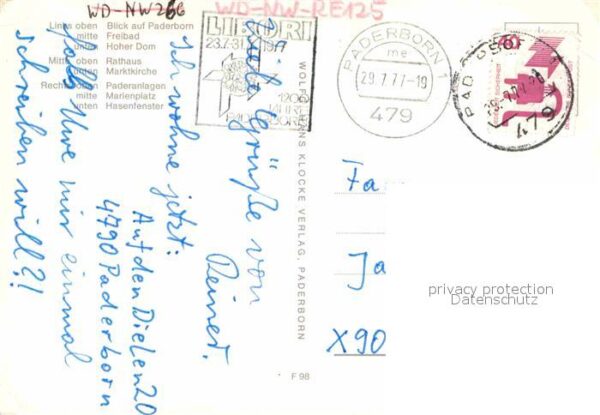 WD-NW266
WD-NW-RE125
Links oben Blick auf Paderborn
mitte Freibad
unten Hoher Dom
Mitte oben Rathaus
unten Marktkirche
Rechts oben Paderanlagen
mitte Marienplatz
unten Hasenfenster
LIBORI
23.7-31. 1977
1900
JAHRE
PADERBORN
PADERBORN 1
me
29.7.77-19
479
60
DEUTSCHE BUNDESPOST
Viele Grüße von
Reiner.
Ich wohne jetzt:
Auf den Dielen 20
4790 Paderborn
falls Uwe mir einmal
schreiben will?!
WOLFGANG HANS KLOCKE VERLAG, PADERBORN
F 98
Fa
Ja
X90
privacy protection
Datenschutz